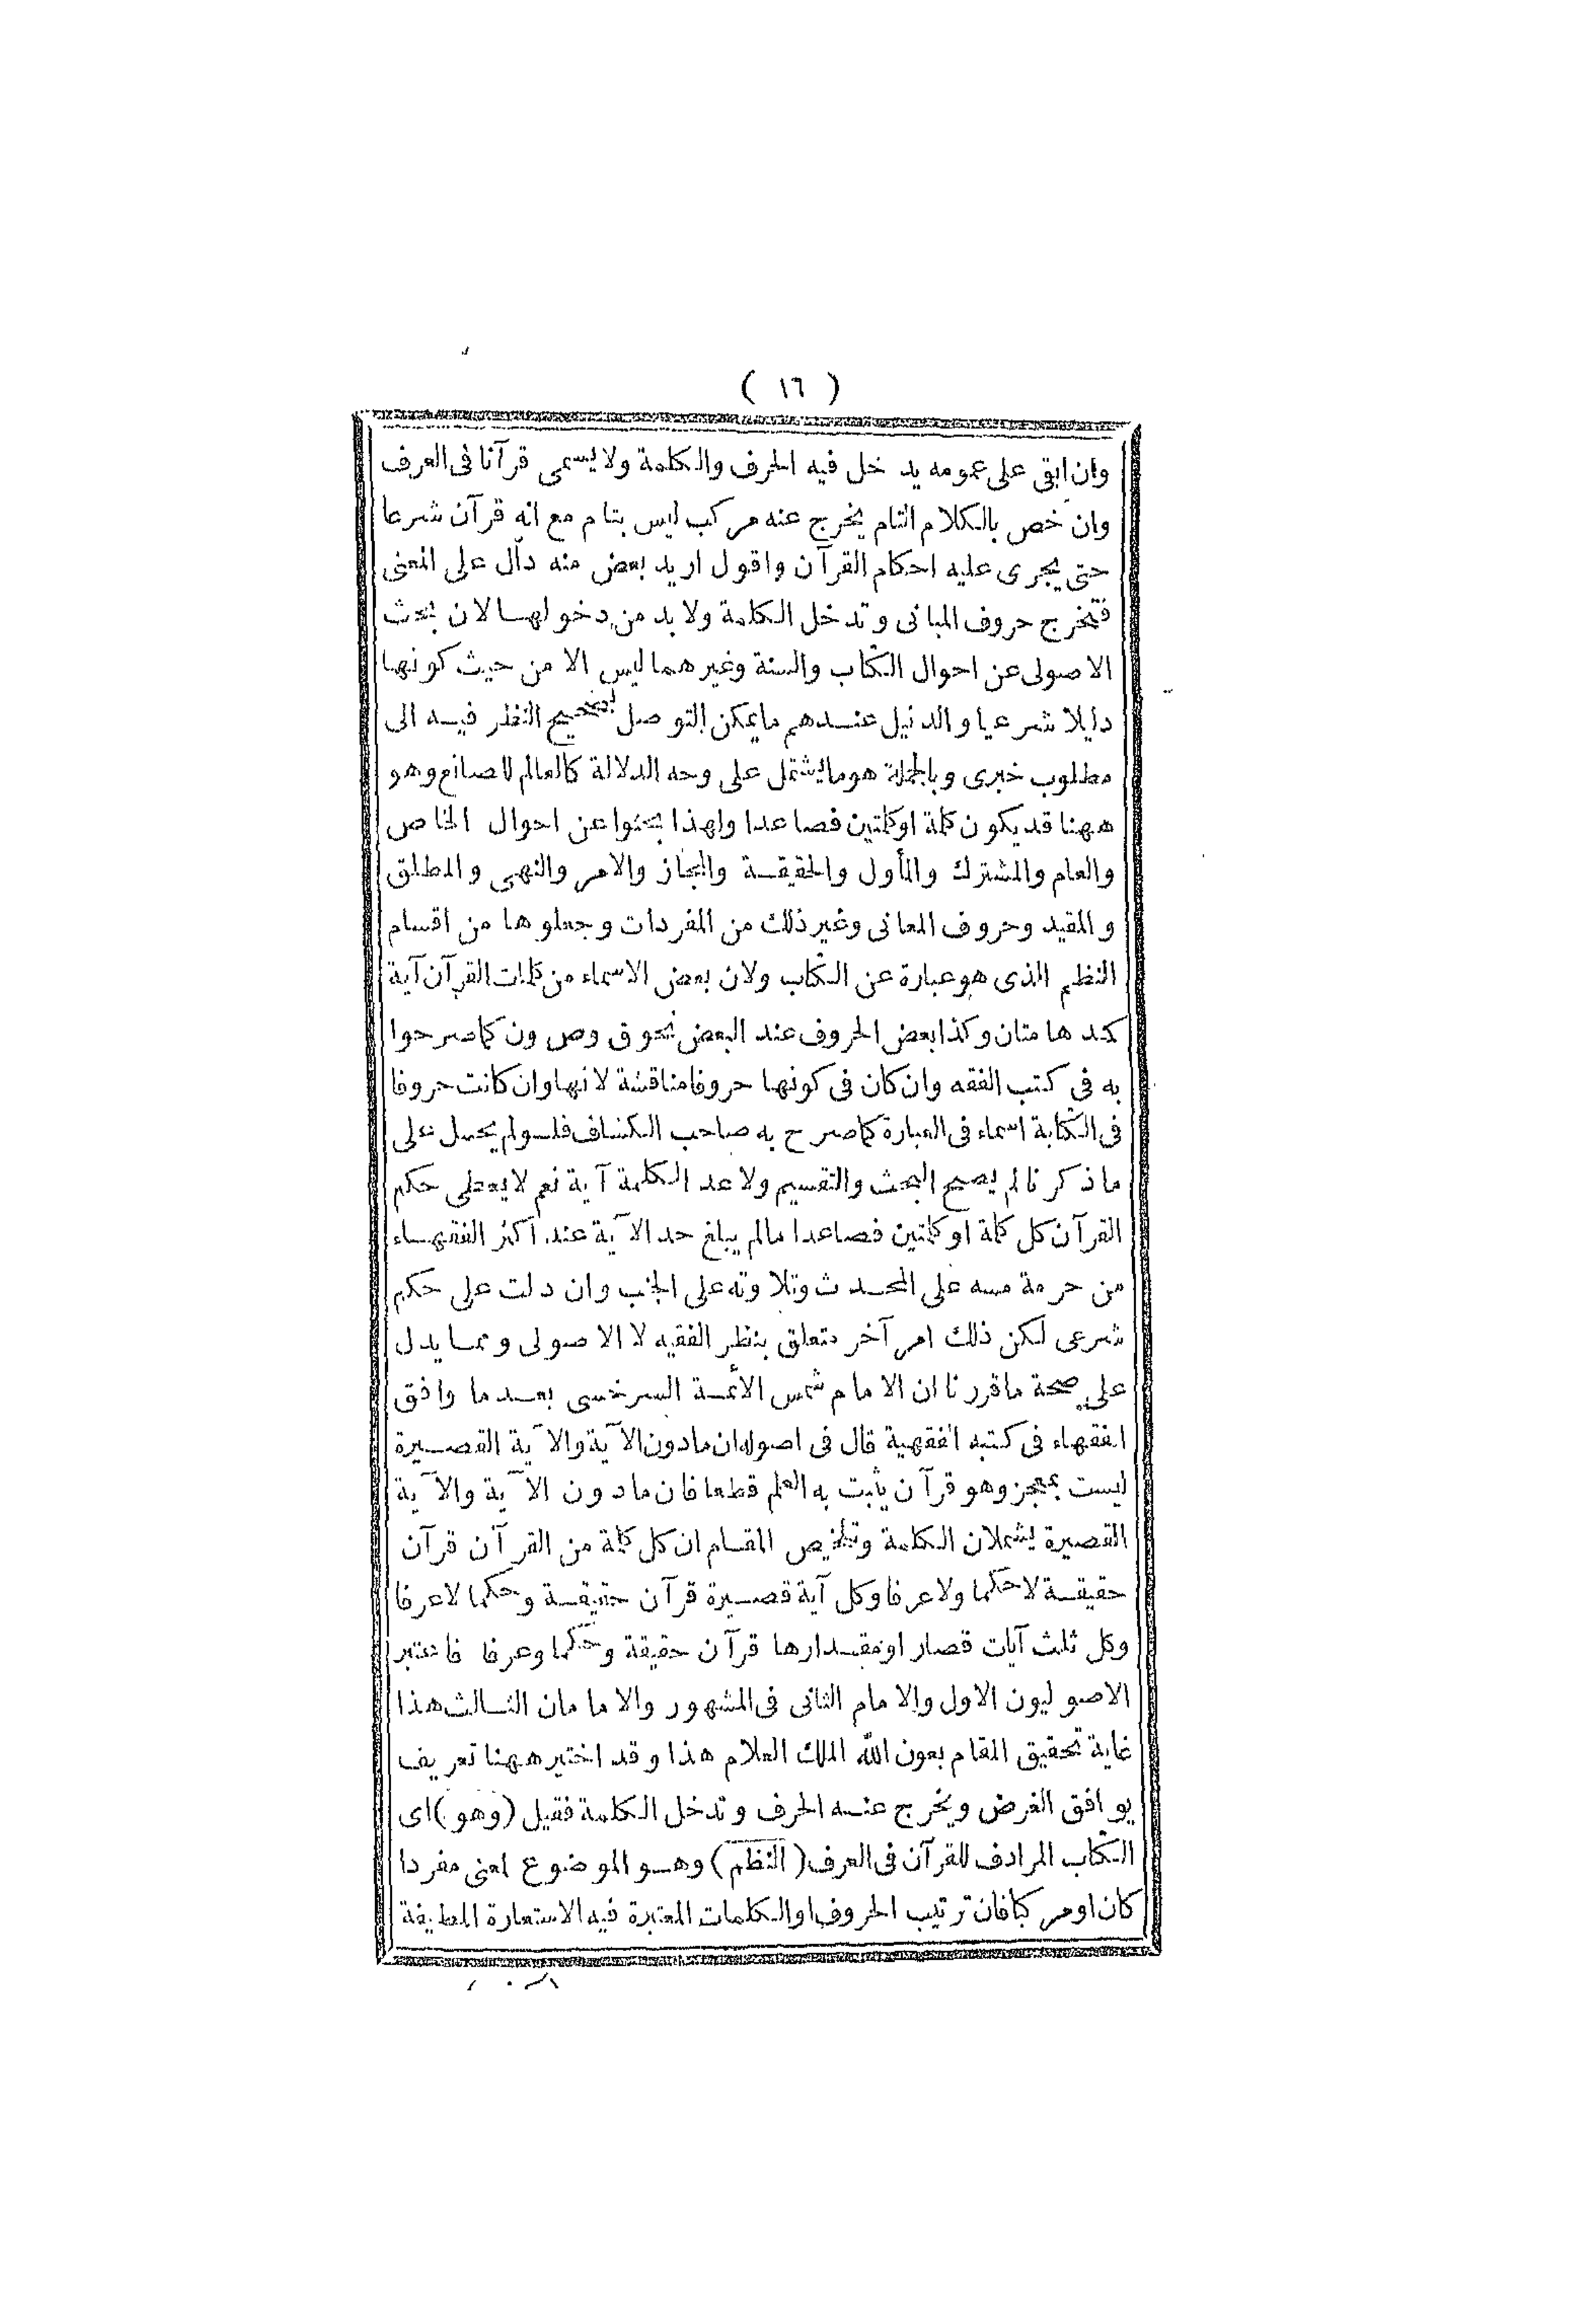 ( ١٦ )
وان ابقى على عمومه يدخل فيه الحرف والكلمة ولا يسمى قرآنا فى العرف
وان خص بالكلام التام يخرج عنه مركب ليس بتام مع انه قرآن شرعا
حتى يجرى عليه احكام القرآن واقول اريد بعض منه دال على المعنى
فتخرج حروف المبانى وتدخل الكلمة ولا بد من دخولها لان بحث
الاصولى عن احوال الكتاب والسنة وغيرهما ليس الا من حيث كونها
دليلا شرعيا والدليل عندهم ما يمكن التوصل بصحيح النظر فيه الى
مطلوب خبرى وبالجملة هو ما يشتمل على وجه الدلالة كالعالم للصانع وهو
ههنا قد يكون كلمة او كلمتين فصاعدا ولهذا بحثوا عن احوال الخاص
والعام والمشترك والمأول والحقيقة والمجاز والامر والنهى والمطلق
والمقيد وحروف المعانى وغير ذلك من المفردات وجعلوها من اقسام
النظم الذى هو عبارة عن الكتاب ولان بعض الاسماء من كلمات القرآن آية
كمدهامتان وكذا بعض الحروف عند البعض نحو ق وص ون كما صرحوا
به فى كتب الفقه وان كان فى كونها حروفا مناقشة لانها وان كانت حروفا
فى الكتابة اسماء فى العبارة كما صرح به صاحب الكشاف فلو لم يحمل على
ما ذكرنا لم يصح البحث والتقسيم ولا عد الكلمة آية نعم لا يعطى حكم
القرآن كل كلمة او كلمتين فصاعدا مالم يبلغ حد الآية عند اكثر الفقهاء
من حرمة مسه على المحدث وتلاوته على الجنب وان دلت على حكم
شرعى لكن ذلك امر آخر متعلق بنظر الفقيه لا الاصولى ومما يدل
على صحة ما قررنا ان الامام شمس الائمة السرخسى بعد ما وافق
الفقهاء فى كتبه الفقهية قال فى اصوله ان ما دون الآية والآية القصيرة
ليست بمعجز وهو قرآن يثبت به العلم قطعا فان ما دون الآية والآية
القصيرة يشملان الكلمة وتلخيص المقام ان كل كلمة من القرآن قرآن
حقيقة لا حكما ولا عرفا وكل آية قصيرة قرآن حقيقة وحكما لا عرفا
وكل ثلث آيات قصار او مقدارها قرآن حقيقة وحكما وعرفا فاعتبر
الاصوليون الاول والامام الثانى فى المشهور والامامان الثالث هذا
غاية تحقيق المقام بعون الله الملك العلام هذا وقد اختير ههنا تعريف
يوافق الغرض ويخرج عنه الحرف وتدخل الكلمة فقيل (وهو) اى
الكتاب المرادف للقرآن فى العرف (النظم) وهو الموضوع لمعنى مفردا
كان او مركبا فان ترتيب الحروف او الكلمات المعتبرة فيه الاستعارة اللطيفة